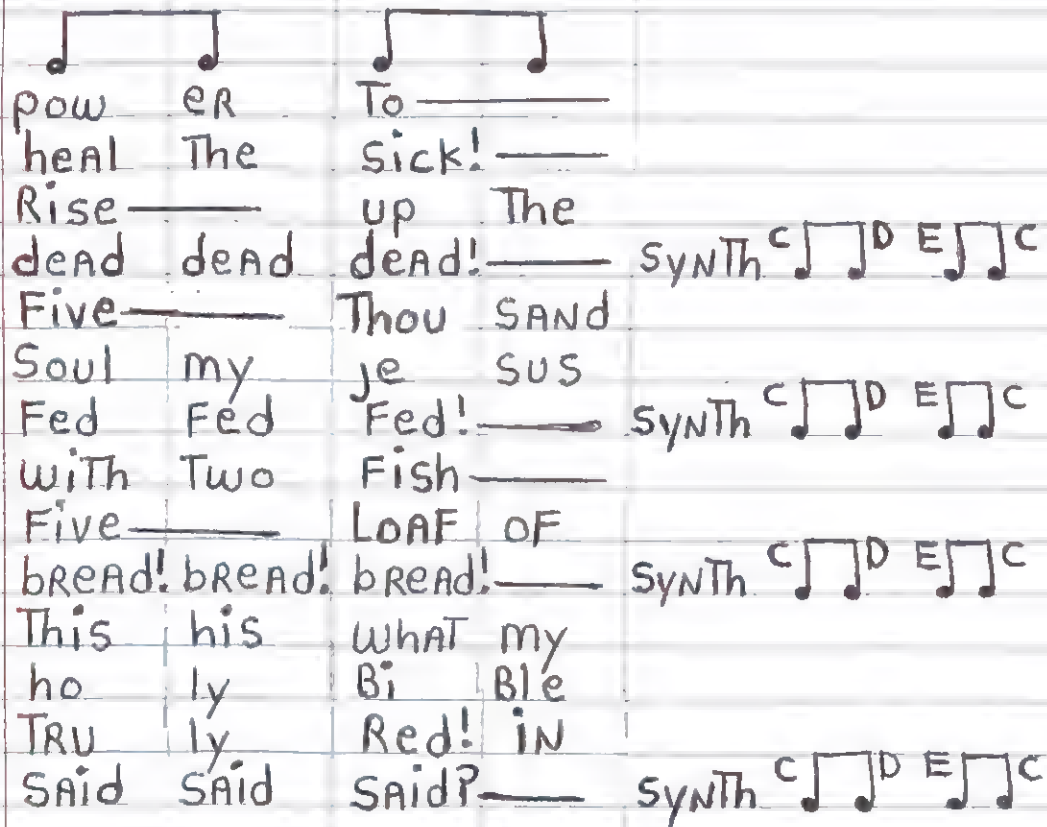 pow er To
heal The Sick!
Rise up The
dead dead dead! Synth C D E C
Five Thou sand
Soul my je sus
Fed Fed Fed! Synth C D E C
with Two Fish
Five Loaf of
bread! bread! bread! Synth C D E C
This his what my
ho ly Bi Ble
Tru ly Red! in
Said Said Said? Synth C D E C